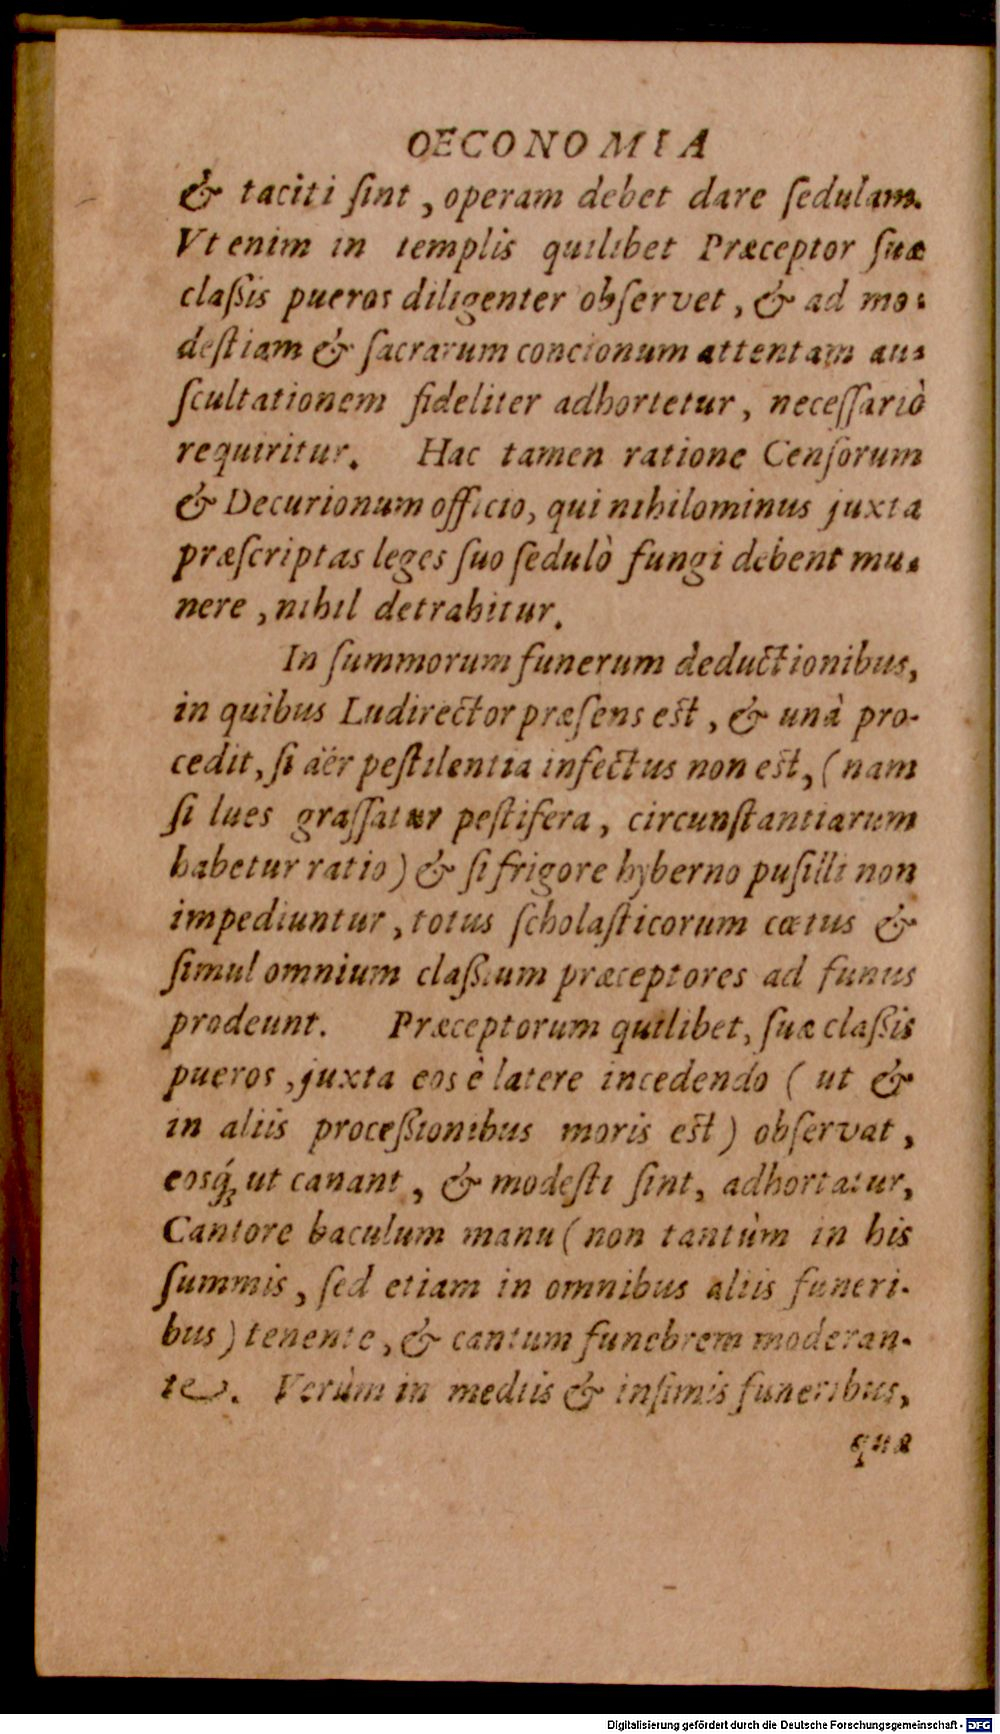 OECONOMIA
& taciti ſint, operam debet dare ſedulam.
Vt enim in templis quilibet Præceptor ſuæ
claſsis pueros diligenter obſervet, & ad mo-
deſtiam & ſacrarum concionum attentam au-
ſcultationem fideliter adhortetur, neceſſariò
requiritur. Hac tamen ratione Cenſorum
& Decurionum officio, qui nihilominus juxta
præſcriptas leges ſuo ſedulò fungi debent mu-
nere, nihil detrahitur.
In ſummorum funerum deductionibus,
in quibus Ludirector præſens est, & unà pro-
cedit, ſi aër peſtilentia infectus non est, (nam
ſi lues graſſatur peſtifera, circunſtantiarum
habetur ratio) & ſi frigore hyberno puſilli non
impediuntur, totus ſcholaſticorum cœtus &
ſimul omnium claſsium præceptores ad funus
prodeunt. Præceptorum quilibet, ſuæ claſsis
pueros, juxta eos è latere incedendo (ut &
in aliis proceſsionibus moris est) obſervat,
eosq́; ut canant, & modeſti ſint, adhortatur,
Cantore baculum manu (non tantùm in his
ſummis, ſed etiam in omnibus aliis funeri-
bus) tenente, & cantum funebrem moderan-
te. Verùm in mediis & inſimis funeribus,
quæ
Digitalisierung gefördert durch die Deutsche Forschungsgemeinschaft - DFG